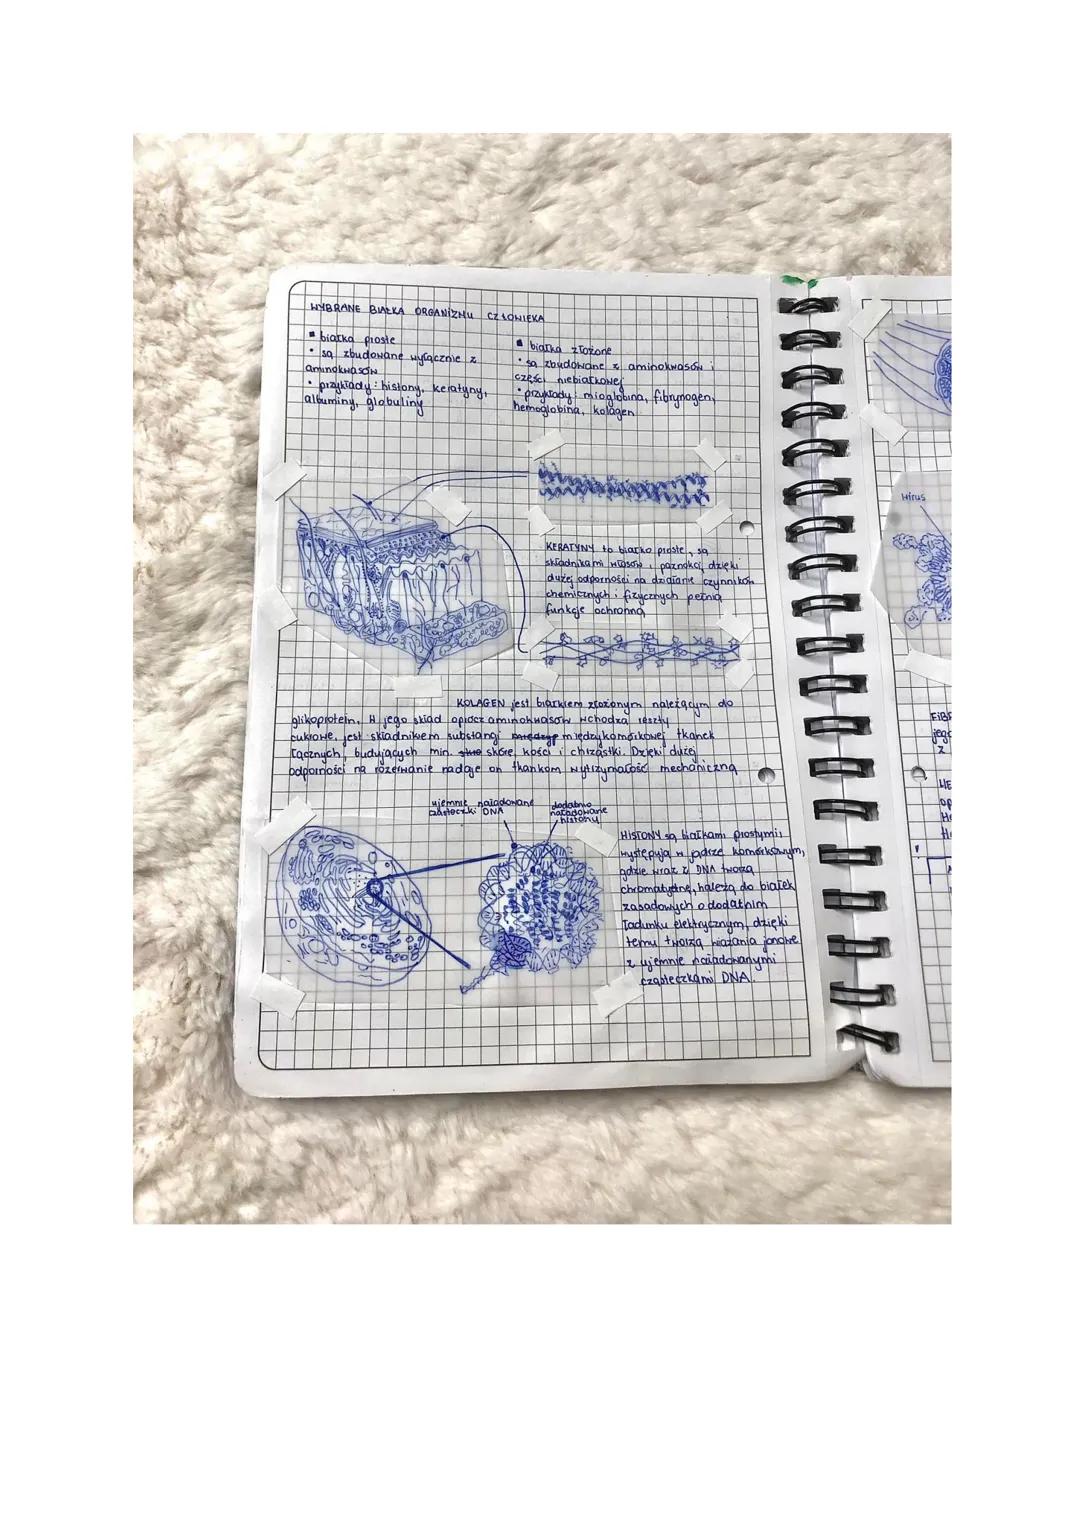 WYBRANE BIAŁKA ORGANIZMU CZŁOWIEKA
▪ białka proste
• są zbudowane wyłącznie z
aminokwasów
• przykłady: histony, keratyny,
albuminy, globuliny
▪ białka złożone
• są zbudowane z aminokwasów i
części niebiałkowej
• przykłady: mioglobina, fibrynogen,
hemoglobina, kolagen
KERATYNY to białka proste, są
składnikami włosów i paznokci, dzięki
dużej odporności na działanie czynników
chemicznych i fizycznych pełnią
funkcje ochronną
KOLAGEN jest białkiem złożonym należącym do
glikoprotein. W jego skład oprócz aminokwasów wchodzą reszty
cukrowe, jest składnikiem substancji międzykomórkowej tkanek
łącznych budujących min. skórę, kości i chrząstki. Dzięki dużej
odporności na rozerwanie nadaje on tkankom wytrzymałość mechaniczną
ujemnie naładowane
cząsteczki DNA
dodatnio
naładowane
histony
HISTONY są białkami prostymi i
występują w jądrze komórkowym,
gdzie wraz z DNA tworzą
chromatynę, należą do białek
zasadowych o dodatnim
ładunku elektrycznym, dzięki
temu tworzą wiązania jonowe
z ujemnie naładowanymi
cząsteczkami DNA.
wirus
FIB
jego
z